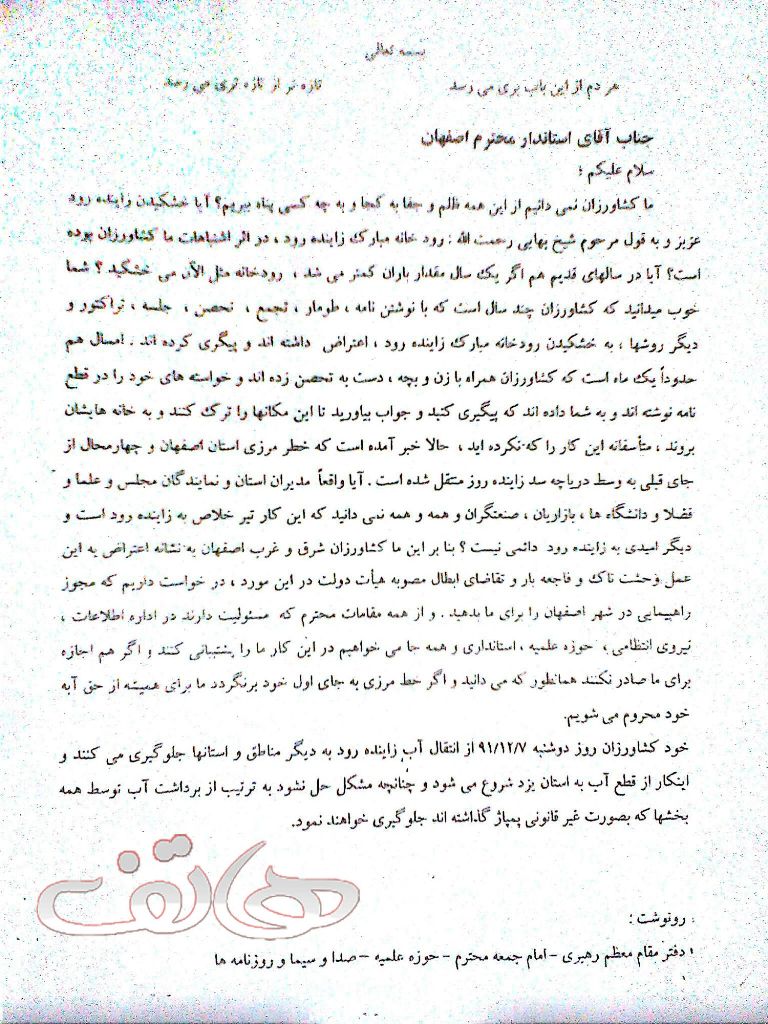 بسمه تعالی
هر دم از این باب بری می رسد تازه تر از تازه تری می رسد
جناب آقای استاندار محترم اصفهان
سلام علیکم ؛
ما کشاورزان نمی دانیم از این همه ظلم و جفا به کجا و به چه کسی پناه ببریم؟ آیا خشکیدن زاینده رود
عزیز و به قول مرحوم شیخ بهایی رحمت الله : رود خانه مبارک زاینده رود ، در اثر اشتباهات ما کشاورزان بوده
است؟ آیا در سالهای قدیم هم اگر یک سال مقدار باران کمتر می شد ، رودخانه مثل الآن می خشکید ؟ شما
خوب میدانید که کشاورزان چند سال است که با نوشتن نامه ، طومار ، تجمع ، تحصن ، جلسه ، تراکتور و
دیگر روشها ؛ به خشکیدن رودخانه مبارک زاینده رود ، اعتراض داشته اند و پیگری کرده اند . امسال هم
حدوداً یک ماه است که کشاورزان همراه با زن و بچه ، دست به تحصن زده اند و خواسته های خود را در قطع
نامه نوشته اند و به شما داده اند که پیگیری کنید و جواب بیاورید تا این مکانها را ترک کنند و به خانه هایشان
بروند ، متأسفانه این کار را که نکرده اید ، حالا خبر آمده است که خطر مرزی استان اصفهان و چهارمحال از
جای قبلی به وسط دریاچه سد زاینده روز منتقل شده است . آیا واقعاً مدیران استان و نمایندگان مجلس و علما و
فضلا و دانشگاه ها ، بازاریان ، صنعتگران و همه و همه نمی دانید که این کار تیر خلاص به زاینده رود است و
دیگر امیدی به زاینده رود دائمی نیست ؟ بنا بر این ما کشاورزان شرق و غرب اصفهان به نشانه اعتراض به این
عمل وحشت ناک و فاجعه بار و تقاضای ابطال مصوبه هیأت دولت در این مورد ، در خواست داریم که مجوز
راهپیمایی در شهر اصفهان را برای ما بدهید . و از همه مقامات محترم که مسئولیت دارند در اداره اطلاعات ،
نیروی انتظامی ، حوزه علمیه ، استانداری و همه جا می خواهیم در این کار ما را پشتیبانی کنند و اگر هم اجازه
برای ما صادر نکنند همانطور که می دانید و اگر خط مرزی به جای اول خود برنگردد ما برای همیشه از حق آبه
خود محروم می شویم.
خود کشاورزان روز دوشنبه ۹۱/۱۲/۷ از انتقال آب زاینده رود به دیگر مناطق و استانها جلوگیری می کنند و
اینکار از قطع آب به استان یزد شروع می شود و چنانچه مشکل حل نشود به ترتیب از برداشت آب توسط همه
بخشها که بصورت غیر قانونی پمپاژ گذاشته اند جلوگیری خواهند نمود.
هاتف
رونوشت :
۱ دفتر مقام معظم رهبری - امام جمعه محترم - حوزه علمیه - صدا و سیما و روزنامه ها